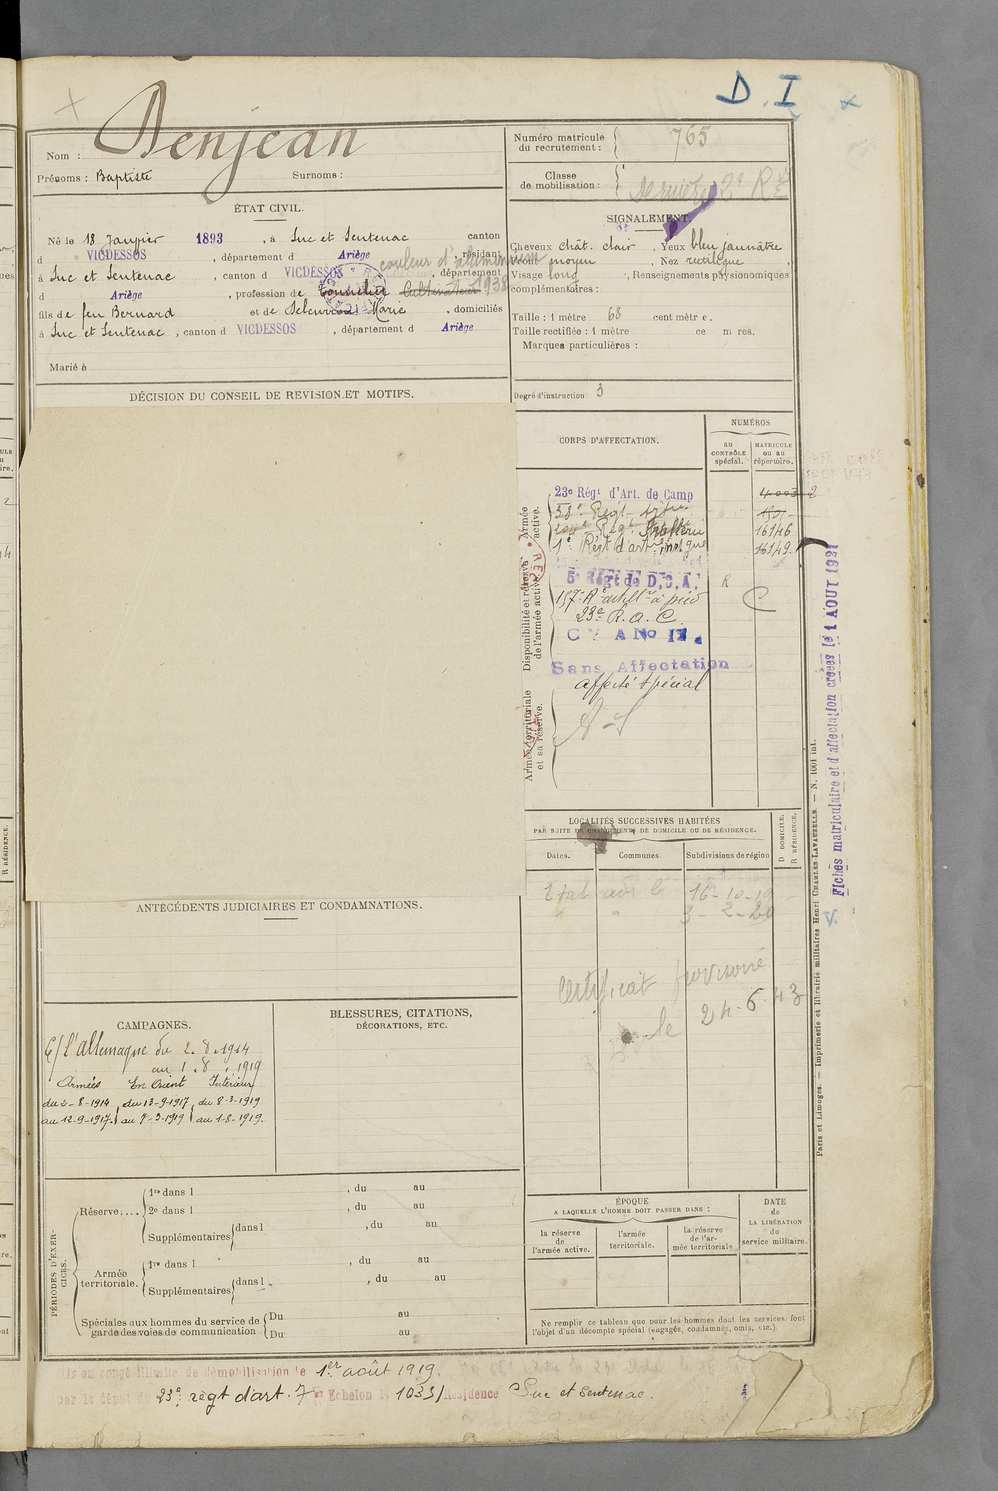 D.I
Denjean
Nom :
Prénoms : Baptiste Surnoms :
Numéro matricule du recrutement : 765
Classe de mobilisation :
ÉTAT CIVIL.
Né le 18 Janvier 1893, à Suc et Sentenac canton
d VICDESSOS, département d Ariège, résidant
à Suc et Sentenac, canton d VICDESSOS, département
d Ariège, profession de Cultivateur 1938
couleur d'aluminium
fils de feu Bernard et de Marie, domiciliés
à Suc et Sentenac, canton d VICDESSOS, département d Ariège
Marié à
SIGNALEMENT.
Cheveux chât. clair, Yeux bleu jaunâtre
moyen, Nez rectiligne,
Visage long, Renseignements physionomiques
complémentaires :
Taille : 1 mètre 68 centimètres.
Taille rectifiée : 1 mètre ce m res.
Marques particulières :
Degré d'instruction 3
DÉCISION DU CONSEIL DE REVISION ET MOTIFS.
CORPS D'AFFECTATION.
NUMÉROS
au CONTRÔLE spécial.
MATRICULE ou au répertoire.
Armée active.
23e Régt d'Art. de Camp
58e Régt
16146
1er Régt d'art. 16149
Disponibilité et réserve de l'armée active.
6e Régt de D.C.A. R
157e R artillie à pied C
23e R.A.C.
Sans Affectation
affecté spécial
A S
Armée territoriale et sa réserve.
Fiches matriculaire et d'affectation créées le 1 AOUT 1921
LOCALITÉS SUCCESSIVES HABITÉES
PAR SUITE DE CHANGEMENTS DE DOMICILE OU DE RÉSIDENCE.
Dates. Communes. Subdivisions de région
D DOMICILE.
R RÉSIDENCE.
16-10-19
3-2-20
Certificat provisoire
le 24-6-43
ANTÉCÉDENTS JUDICIAIRES ET CONDAMNATIONS.
CAMPAGNES.
C/ l'allemagne du 2.8.1914
au 1.8.1919
Armées En Orient Intérieur
du 2-8-1914 du 13-9-1917 du 8-3-1919
au 12-9-1917. au 7-3-1919 au 1-8-1919.
BLESSURES, CITATIONS,
DÉCORATIONS, ETC.
PÉRIODES D'EXERCICES.
Réserve....
1re dans l , du au
2e dans l , du au
Supplémentaires dans l , du au
Armée territoriale.
1re dans l , du au
Supplémentaires dans l , du au
Spéciales aux hommes du service de garde des voies de communication
Du au
Du au
ÉPOQUE
A LAQUELLE L'HOMME DOIT PASSER DANS :
la réserve de l'armée active.
l'armée territoriale.
la réserve de l'armée territoriale
DATE de LA LIBÉRATION du service militaire.
Ne remplir ce tableau que pour les hommes dont les services font
l'objet d'un décompte spécial (engagés, condamnés, omis, etc.).
Paris et Limoges. — Imprimerie et librairie militaires Henri CHARLES-LAVAUZELLE. — N. 1001 int.
en congé illimité de démobilisation le 1er août 1919.
par le dépôt du 23e régt d'art. 7e Echelon N. 1035/ Résidence Suc et Sentenac.